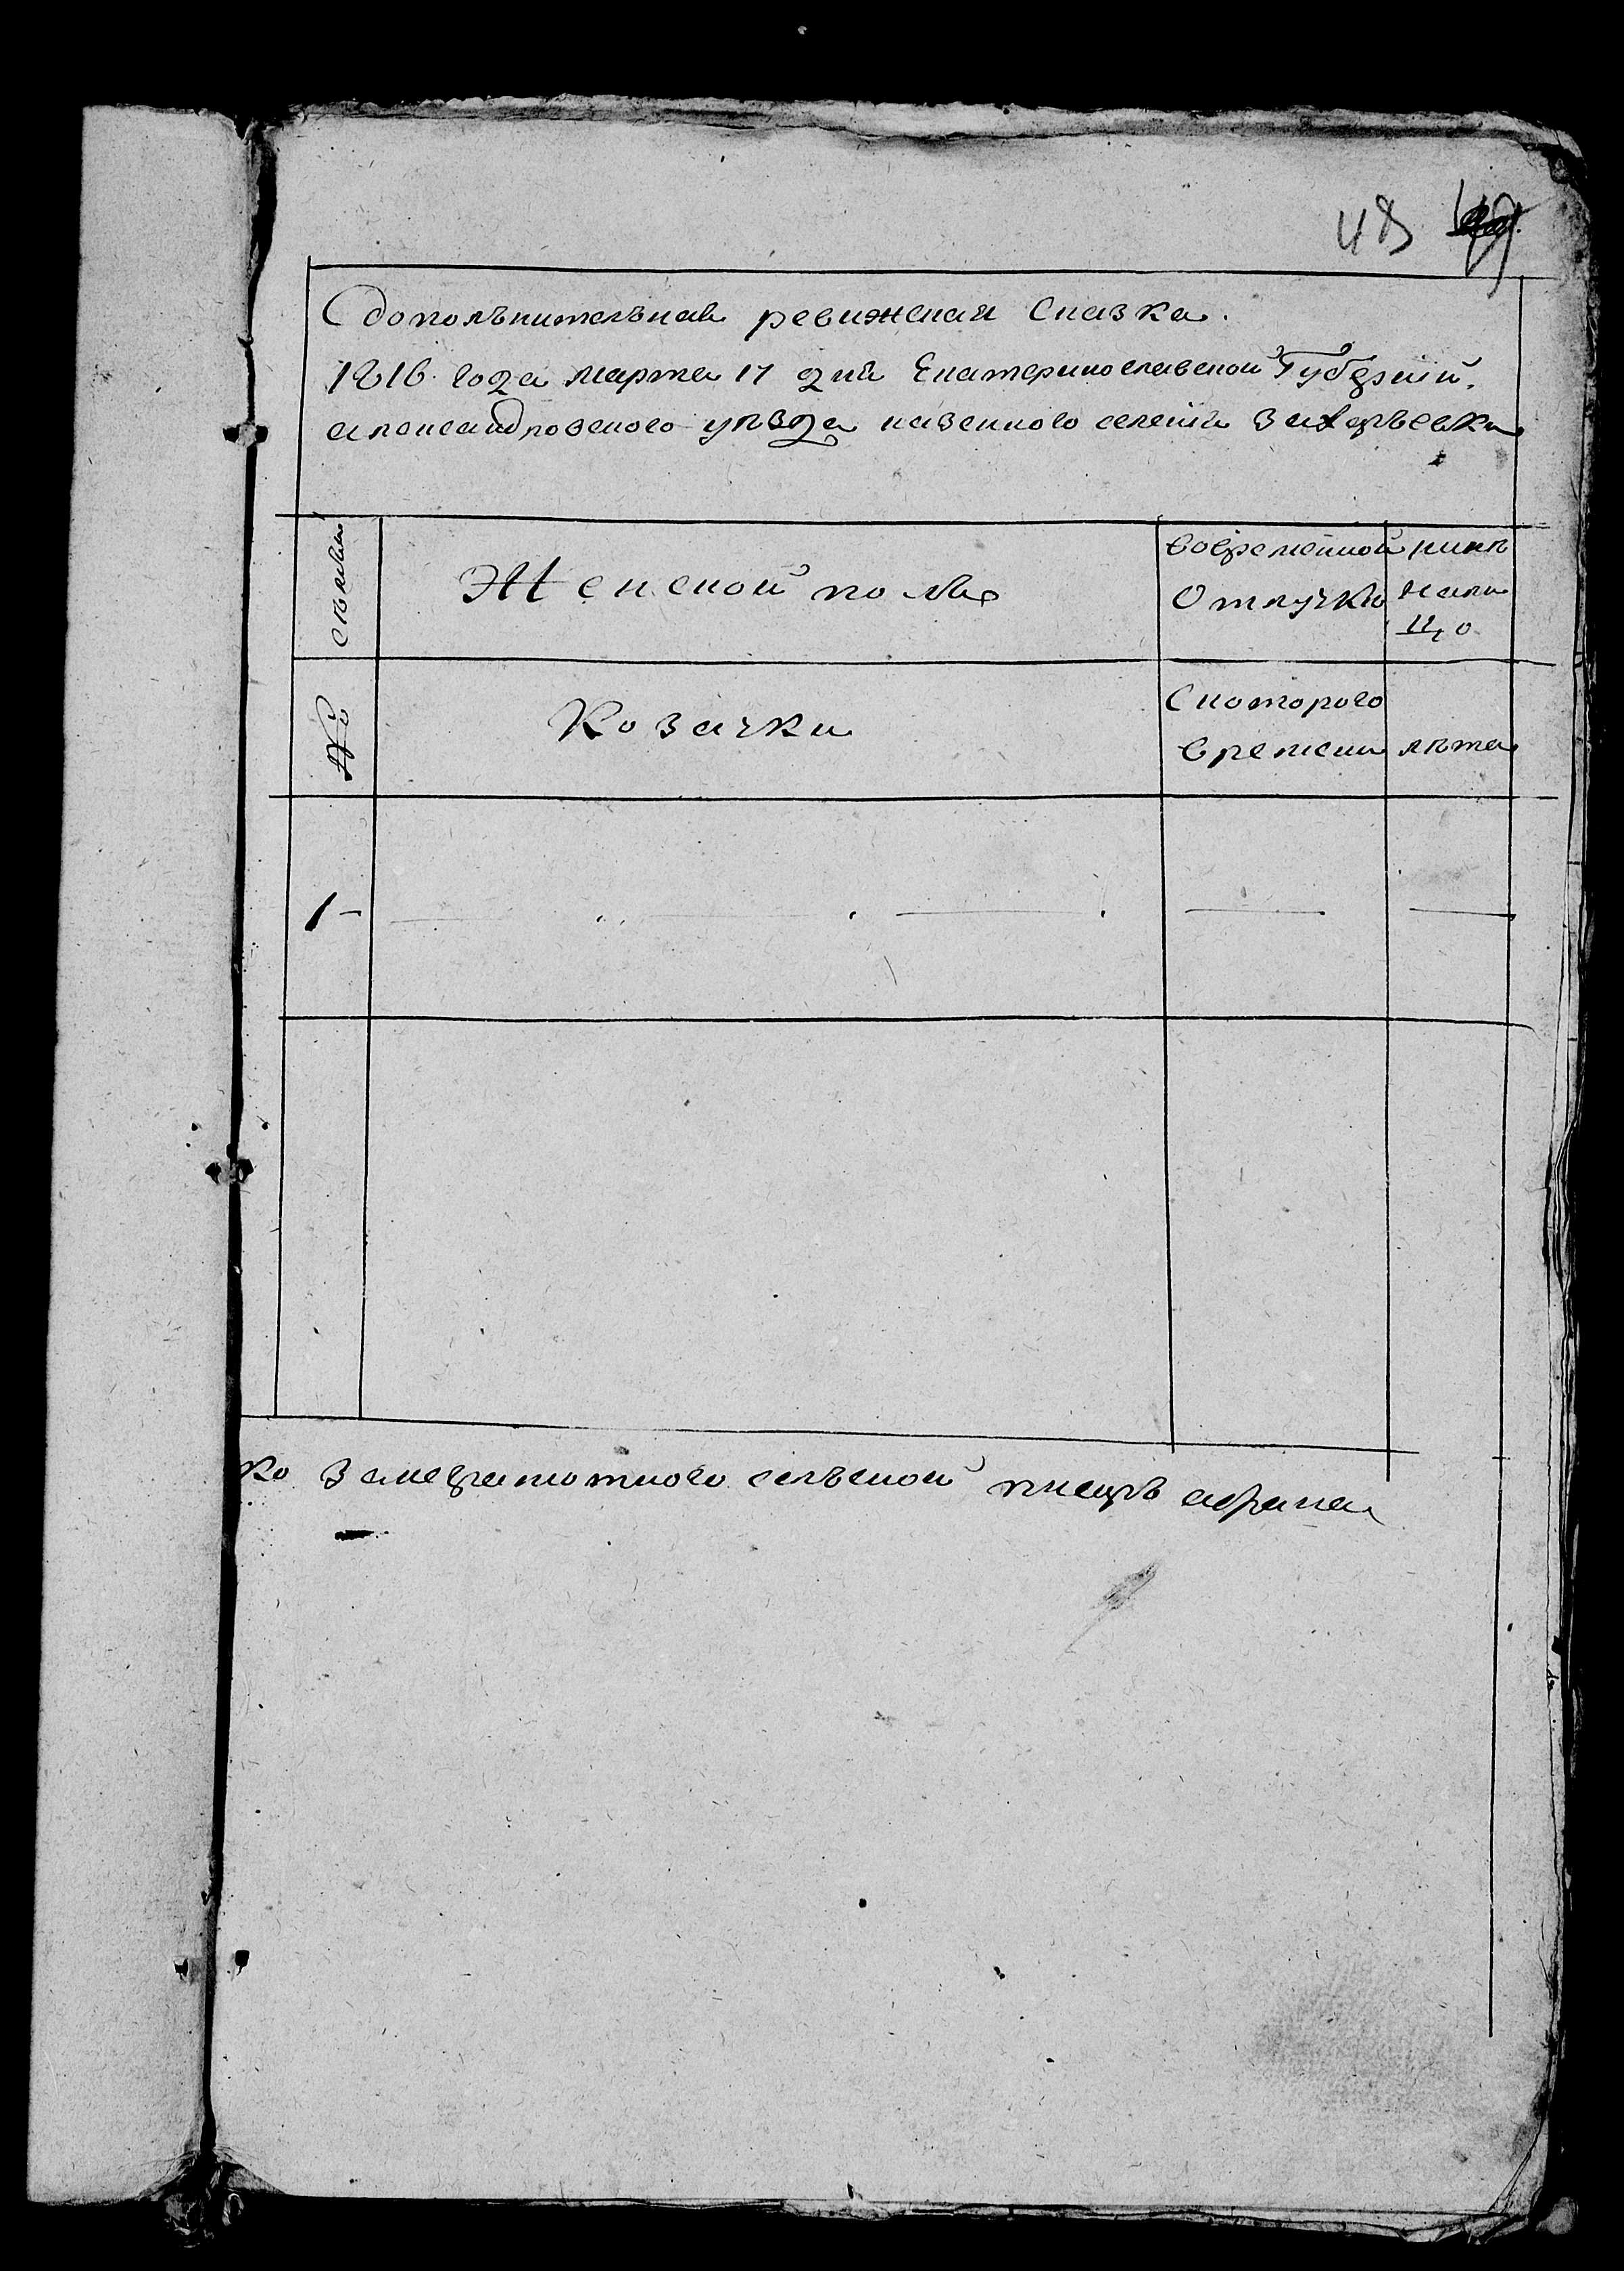 48
дополънительная ревижская сказка.
1816 года марта 17 дня Екатеринославской Губернии.
александровского уезда казенного селения Захарьевки
семьи
Женской полъ
вовременной
Отлучки
ныне
нали
цо
№
Козачки
Скоторого
времени
лета
1 –
ко Занеграмотного селъской писарь